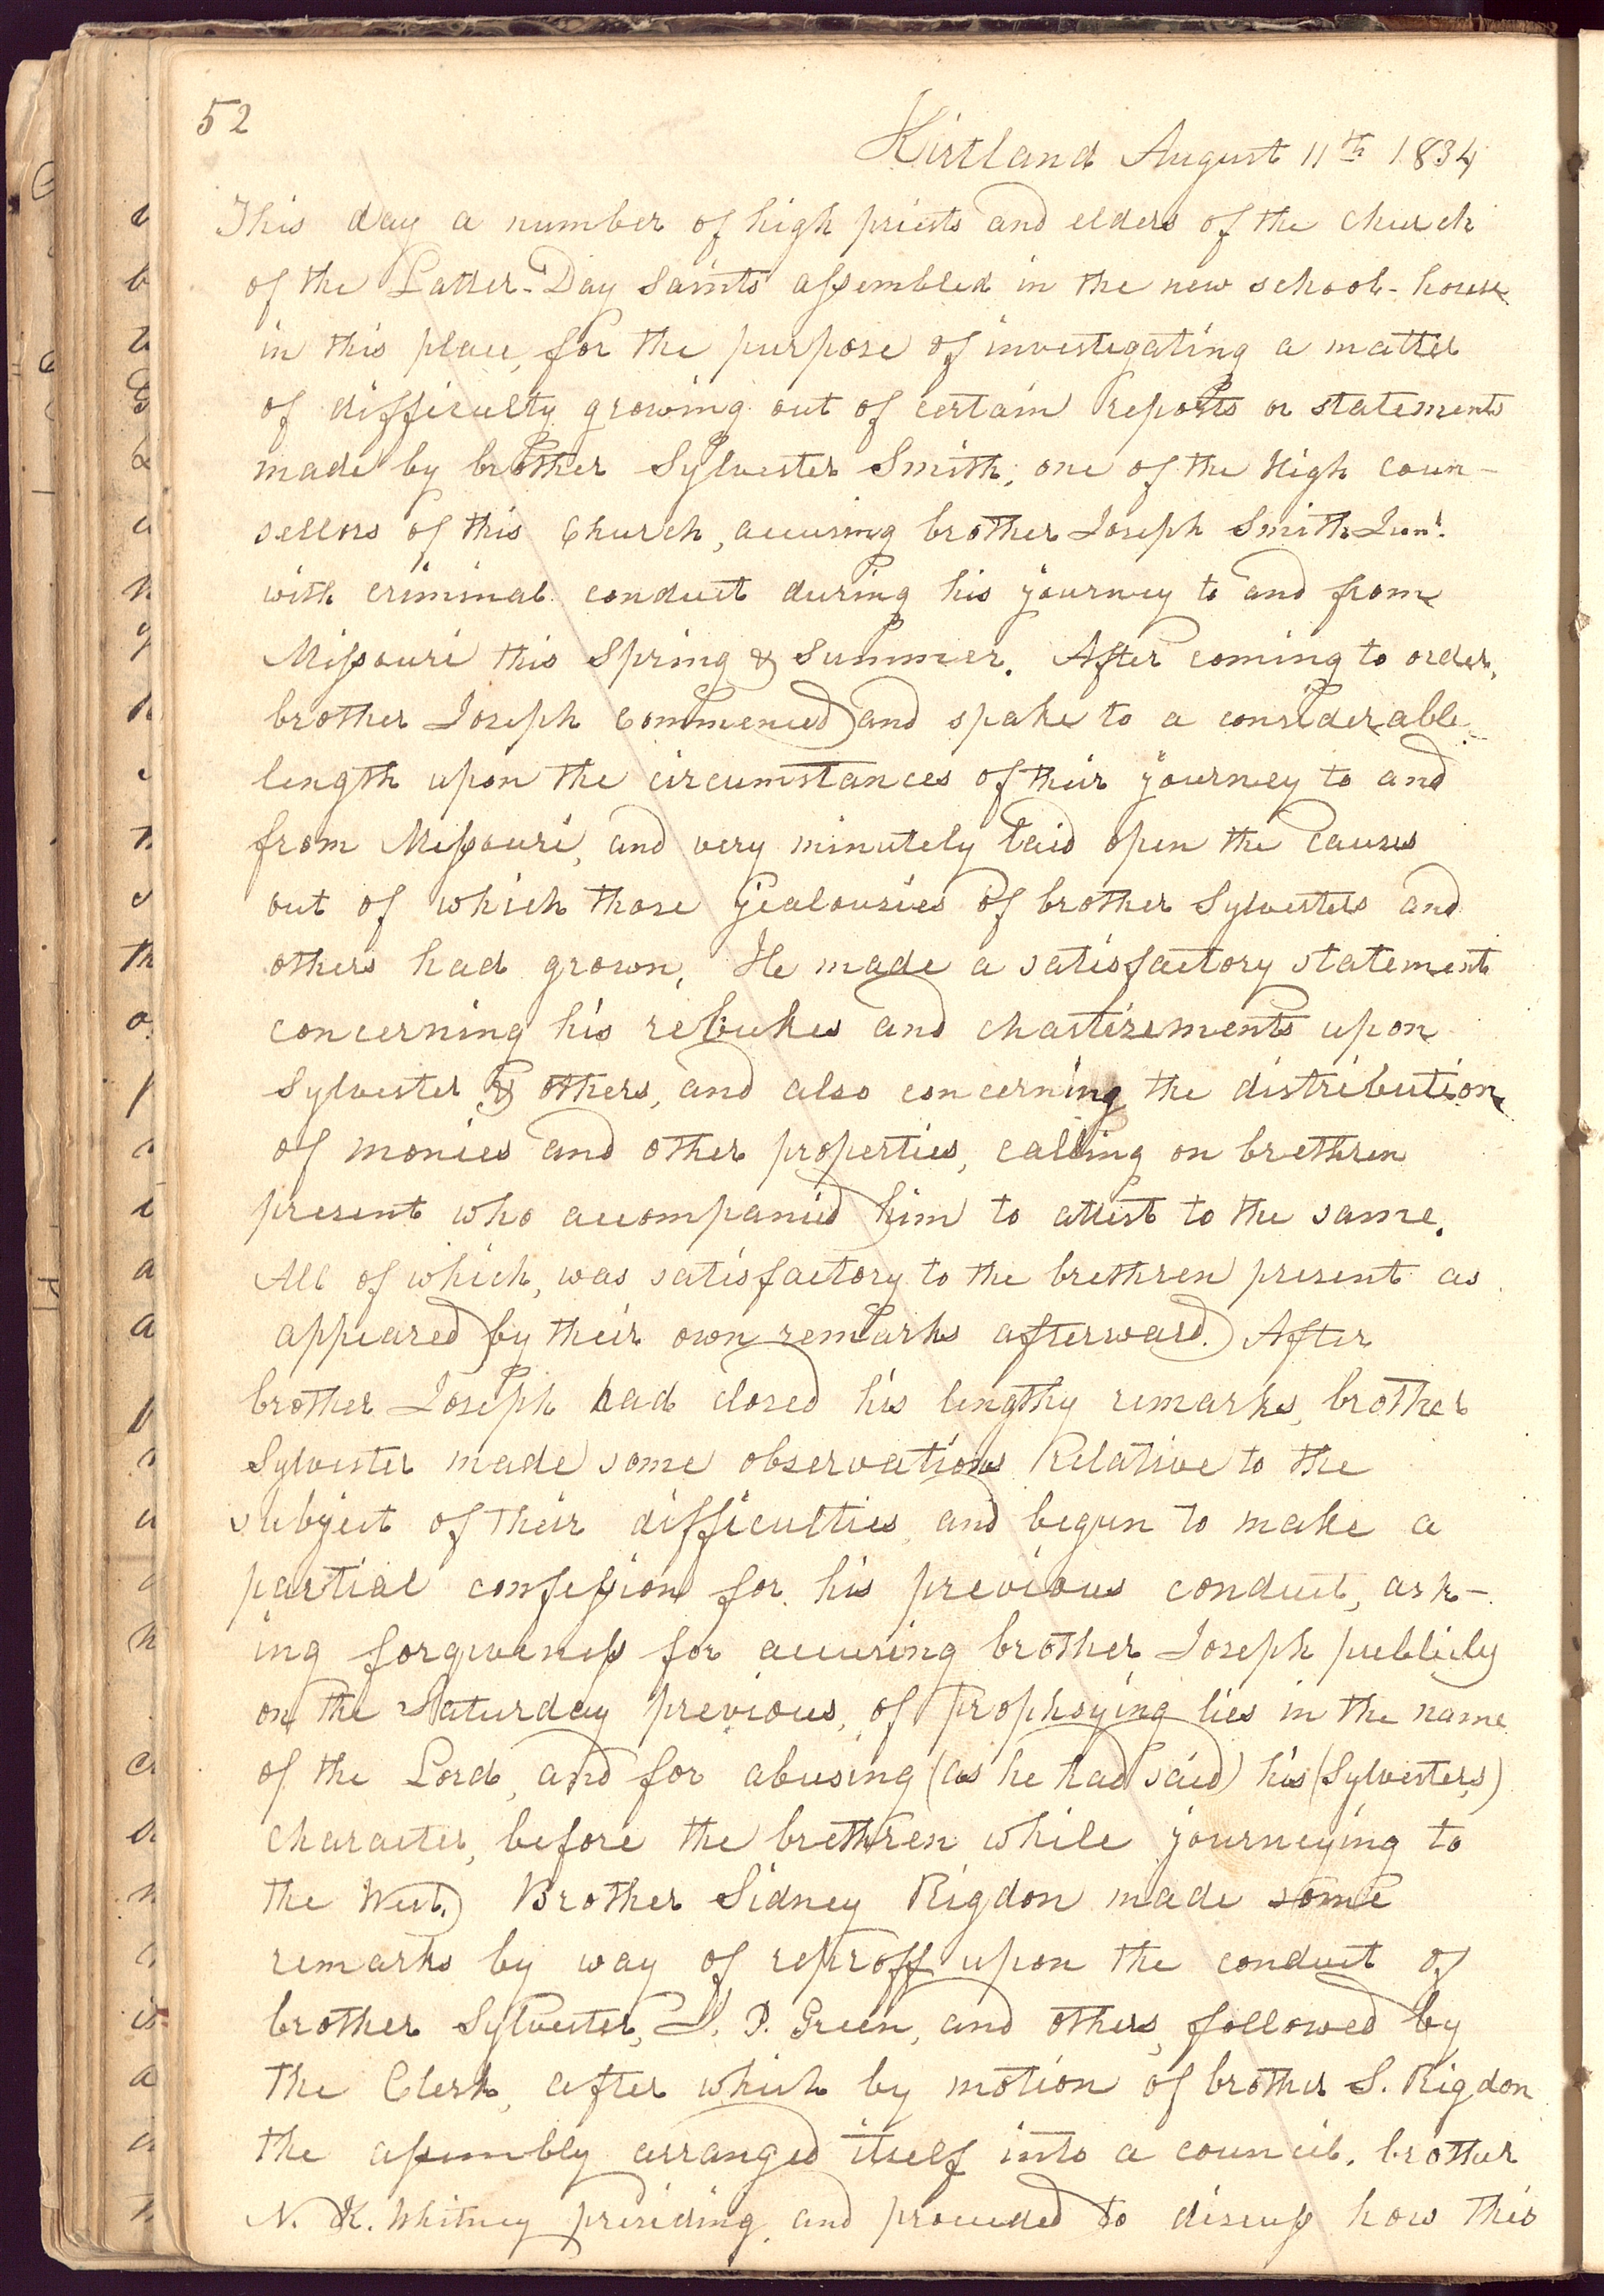 52
Kirtland August 11th 1834
This day a number of high priests and elders of the church
of the Latter-Day Saints assembled in the new school-house
in this place, for the purpose of investigating a matter
of difficulty growing out of certain reports or statements
made by brother Sylvester Smith, one of the High coun-
sellors of this Church, accusing brother Joseph Smith Junr.
with criminal conduct during his journey to and from
Missouri this Spring & Summer. After coming to order,
brother Joseph commenced and spake to a considerable
length upon the circumstances of their journey to and
from Missouri, and very minutely laid open the causes
out of which those jealousies of brother Sylvesters and
others had grown. He made a satisfactory statement
concerning his rebukes and chastizements upon
Sylvester & others, and also concerning the distribution
of monies and other properties, calling on brethren
present who accompanied him to attest to the same.
All of which, was satisfactory to the brethren present as
appeared by their own remarks afterward. After
brother Joseph had closed his lengthy remarks, brother
Sylvester made some observations Relative to the
subject of their difficulties, and begun to make a
partial confession for his previous conduct, ask-
ing forgiveness for accusing brother Joseph publicly
on the Saturday previous, of prophsying lies in the name
of the Lord, and for abusing (as he had said) his (Sylvesters)
character, before the brethren while journeying to
the West. Brother Sidney Rigdon made some
remarks by way of reproff upon the conduct of
brother Sylvester, J. P. Green, and others, followed by
the Clerk, after which by motion of brother S. Rigdon
the assembly arranged itself into a council, brother
N. K. Whitney presiding, and proceeded to discuss how this